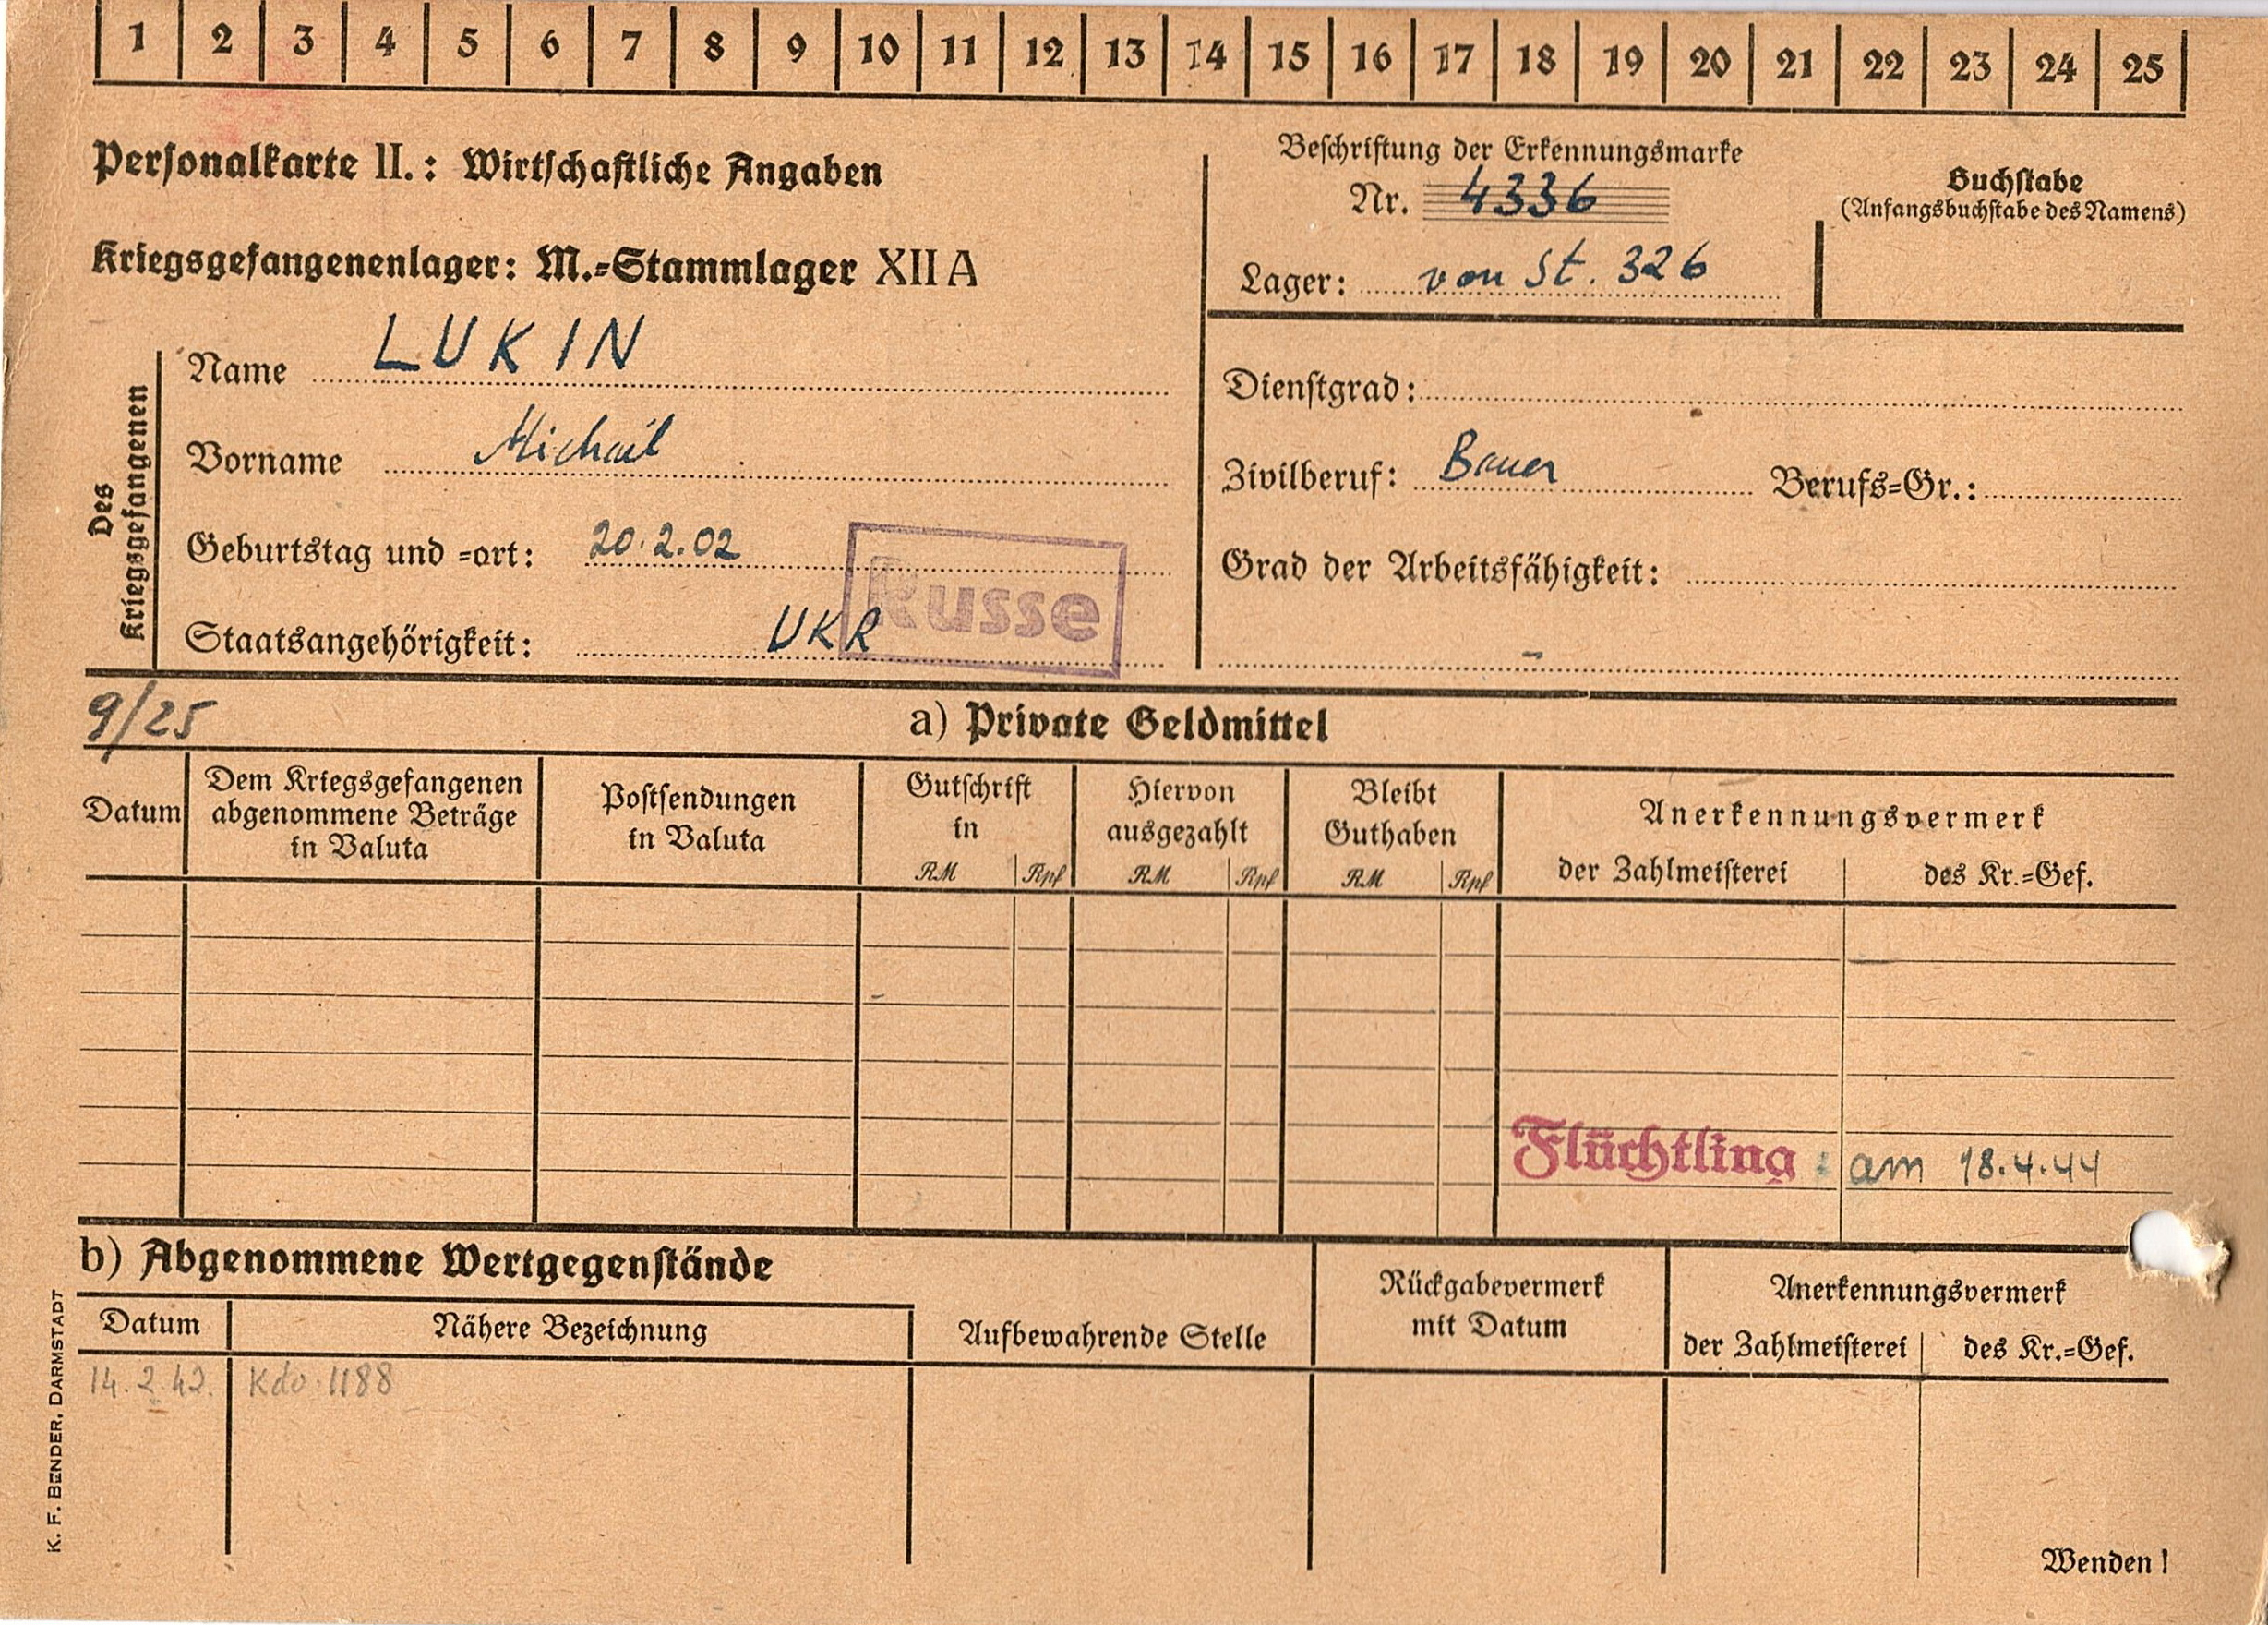 1 2 3 4 5 6 7 8 9 10 11 12 13 14 15 16 17 18 19 20 21 22 23 24 25
Personalkarte II.: Wirtschaftliche Angaben
Kriegsgefangenenlager: M.-Stammlager XII A
Beschriftung der Erkennungsmarke
Nr. 4336
Lager: von St. 326
Buchstabe
(Anfangsbuchstabe des Namens)
Des
Kriegsgefangenen
Name LUKIN
Vorname Michail
Geburtstag und -ort: 20.2.02
Staatsangehörigkeit: UKR
Russe
Dienstgrad:
Zivilberuf: Bauer Berufs-Gr.:
Grad der Arbeitsfähigkeit:
9/25
a) Private Geldmittel
Datum
Dem Kriegsgefangenen
abgenommene Beträge
in Valuta
Postsendungen
in Valuta
Gutschrift
in
RM Rpf
Hiervon
ausgezahlt
RM Rpf
Bleibt
Guthaben
RM Rpf
Anerkennungsvermerk
der Zahlmeisterei des Kr.-Gef.
Flüchtling: am 18.4.44
b) Abgenommene Wertgegenstände
Datum Nähere Bezeichnung
Aufbewahrende Stelle
Rückgabevermerk
mit Datum
Anerkennungsvermerk
der Zahlmeisterei des Kr.-Gef.
14.2.42. Kdo. 1188
K. F. BENDER, DARMSTADT
Wenden!